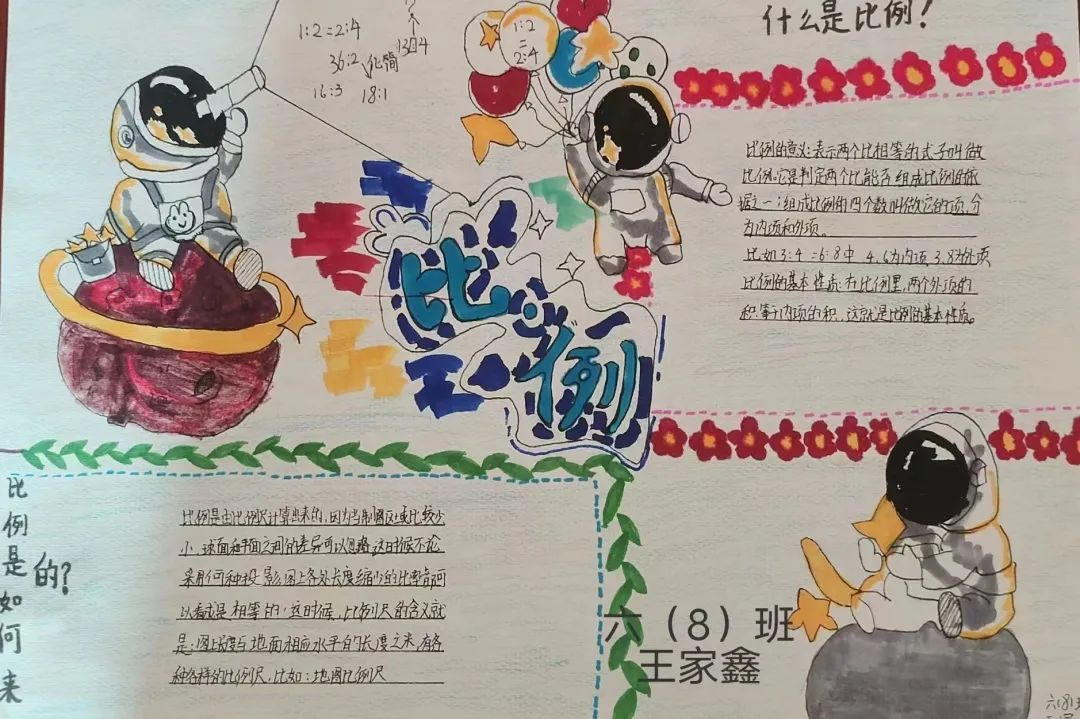 1:2=2:4
个
13口4
36:2
化简
16:3 18:1
1:2
=
2:4
什么是比例!
比例的意义:表示两个比相等的式子叫做
比例。它是判定两个比能否组成比例的依
据之一;组成比例的四个数叫做它的项,分
为内项和外项。
比如3:4=6:8中 4.6为内项 3.8为外项
比例的基本性质:在比例里,两个外项的
积等于内项的积,这就是比例的基本性质。
比例
比例是如何来的?
比例是由比例尺计算出来的,因为当制图区域比较少
小,球面和平面之间的差异可以忽略,这时候不论
采用何种投影,图上各处长度缩小的比率都可
以看成是相等的,这时候,比例尺的含义就
是:图上长度与地面相应水平的长度之米,有各
种各样的比例尺,比如:地图比例尺
六（8）班
王家鑫